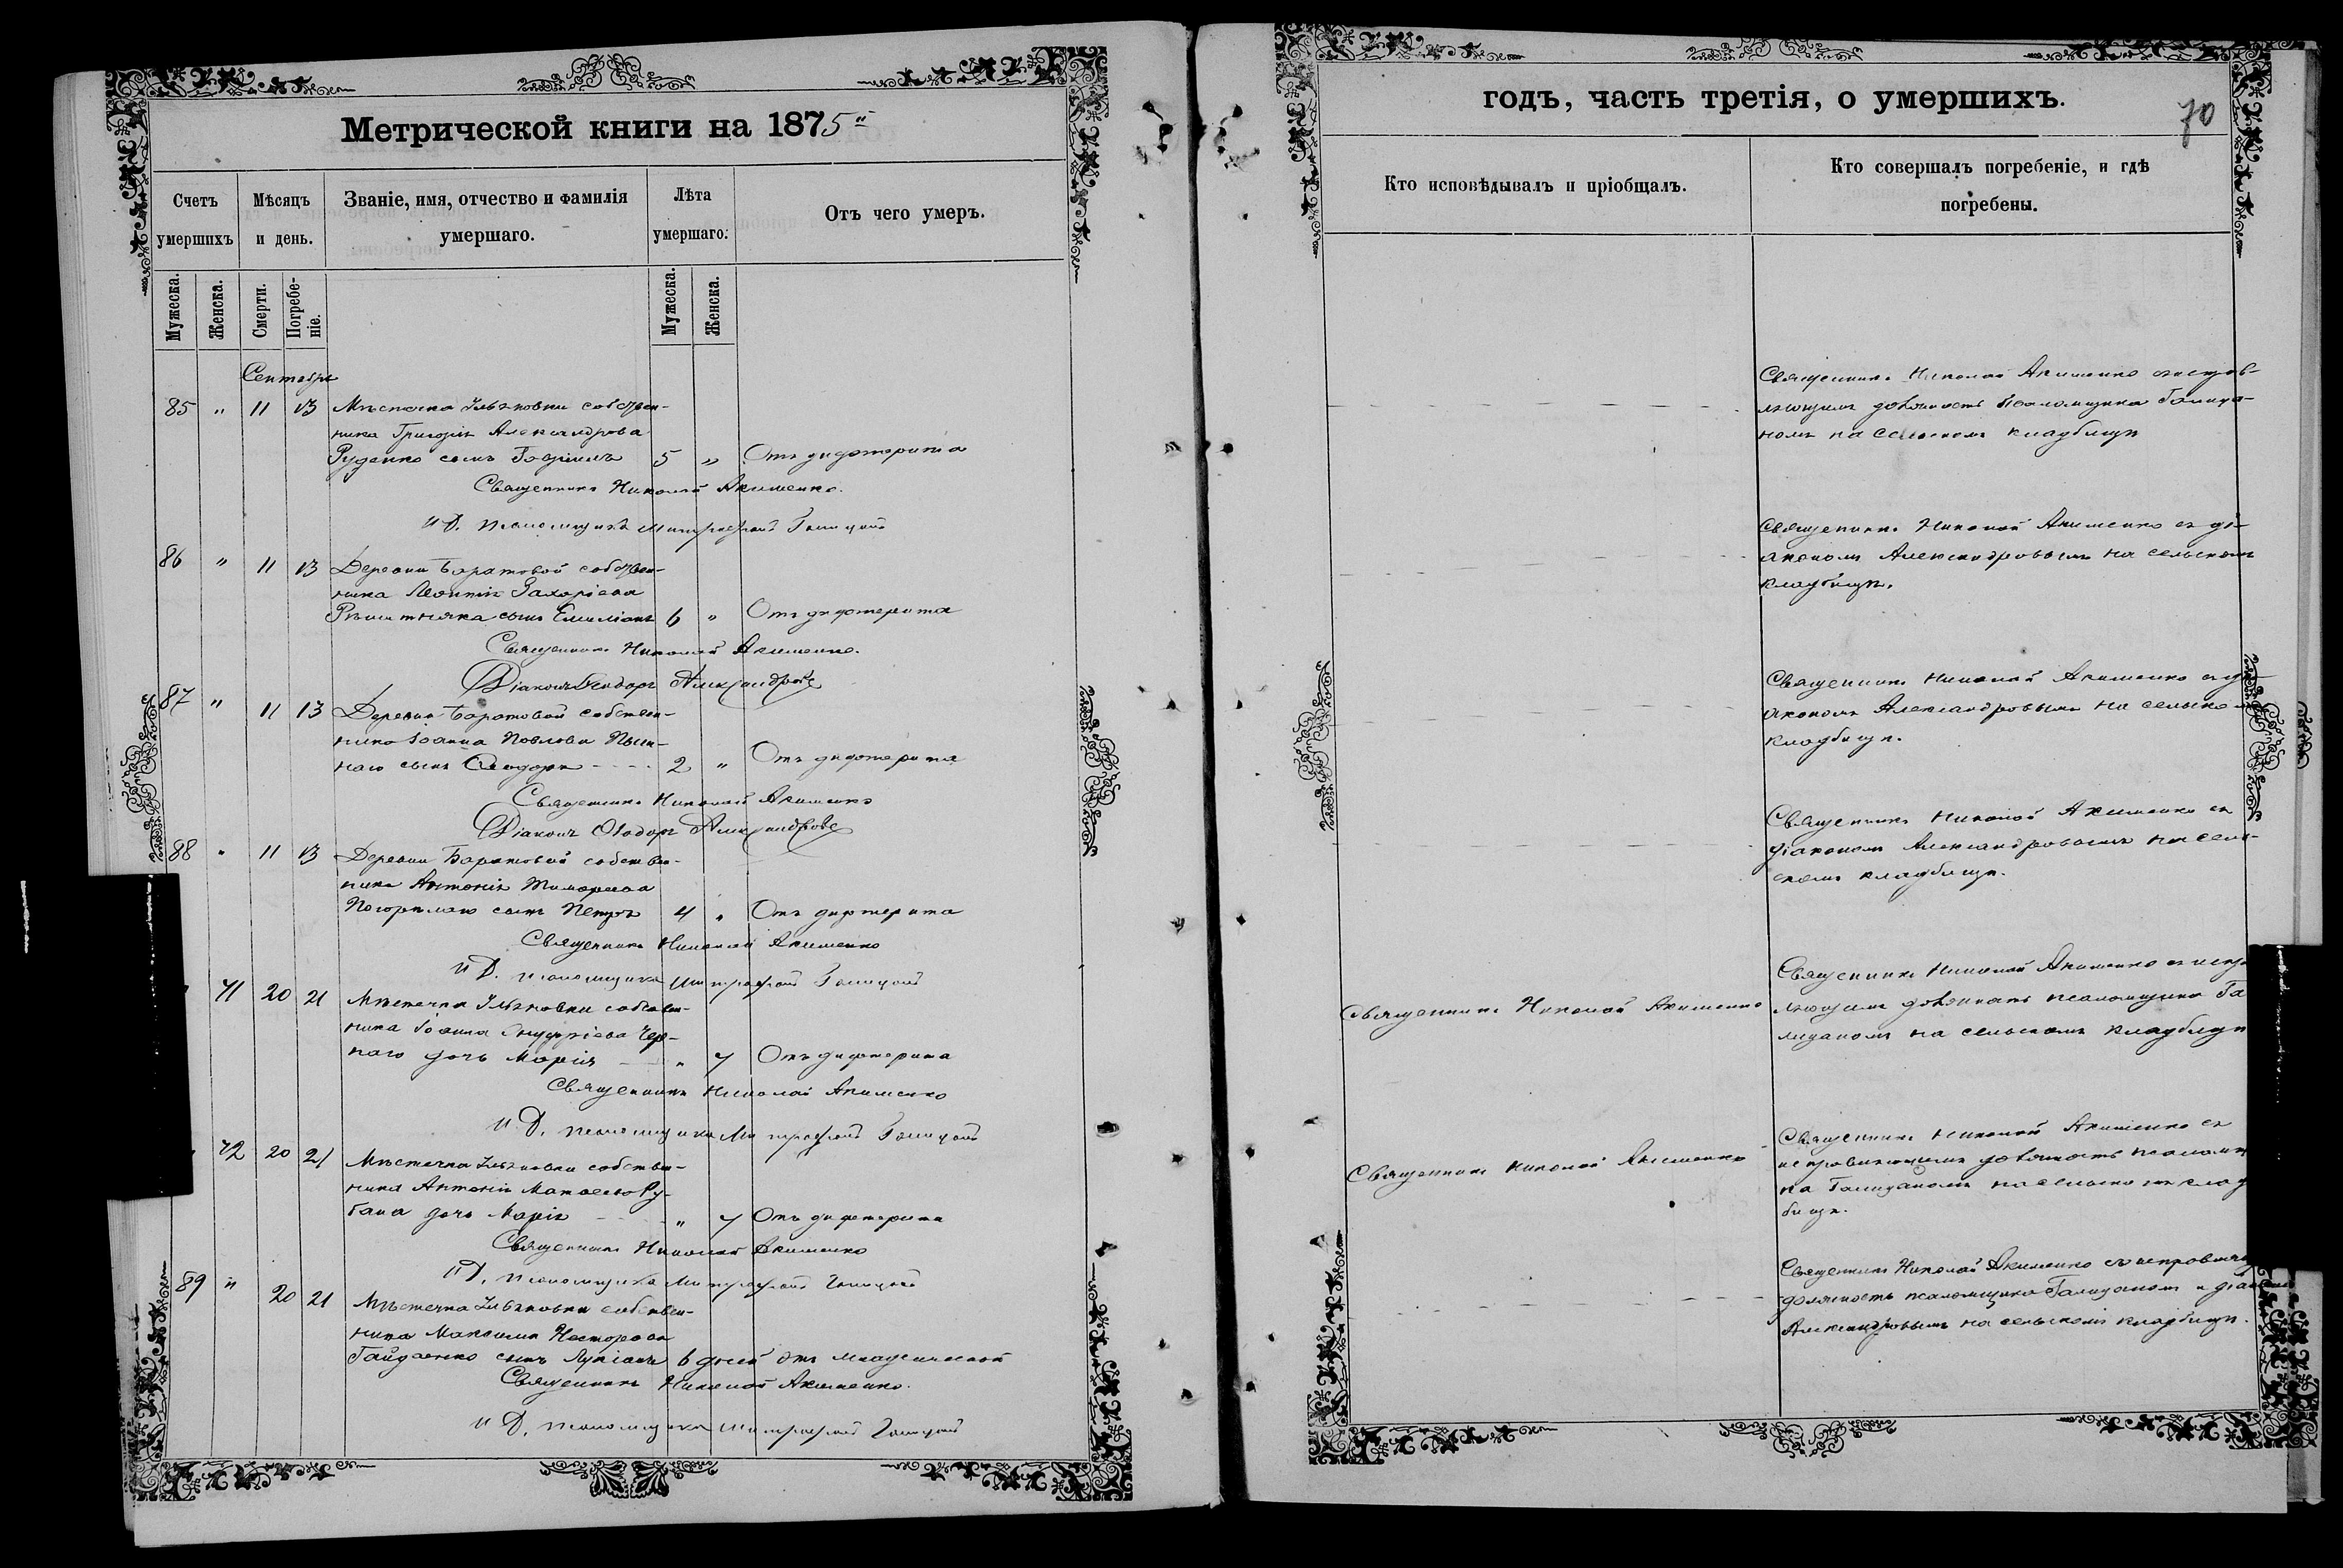 Метрической книги на 1875й
Счетъ умершихъ
Мѣсяцъ и день.
Званіе, имя, отчество и фамилія умершаго.
Лѣта умершаго.
Отъ чего умеръ.
Мужеска.
Женска.
Смерти.
Погребеніе.
Мужеска.
Женска.
Сентябрь
85 " 11 13 Мѣстечка Ильяновки собствен-
ника Григорія Александрова
Руденко сынъ 5 " Отъ дифтерита
Священникъ Николай Акименко.
И Д. псаломщика Митрофанъ
86 " 11 13 Деревни Баратовой собствен-
ника Леонтія Захаріева
сынъ Емиліанъ 6 " Отъ дифтерита
Священникъ Николай Акименко.
Діаконъ Ѳеодоръ Александровъ
87 " 11 13 Деревни Баратовой собствен-
ника Іоанна Павлова
наго сынъ Ѳеодоръ 2 " Отъ дифтерита
Священникъ Николай Акименко
Діаконъ Ѳеодоръ Александровъ
88 " 11 13 Деревни Баратовой собствен-
ника Антонія
Погорѣлаго сынъ Петръ 4 " Отъ дифтерита
Священникъ Николай Акименко
И Д. псаломщика Митрофанъ
71 20 21 Мѣстечка Ильяновки собствен-
ника Іоанна Онуфріева Чер-
наго дочь Марія " 7 Отъ дифтерита
Священникъ Николай Акименко
И Д. псаломщика Митрофанъ
72 20 21 Мѣстечка Ильяновки собствен-
ника Антонія Ру-
бана дочь Марія " 7 Отъ дифтерита
Священникъ Николай Акименко
И Д. псаломщика Митрофанъ
89 " 20 21 Мѣстечка Ильяновки собствен-
ника Максима Несторова
Гайдаенко сынъ Лукіанъ 6 дней Отъ младенческой
Священникъ Николай Акименко.
И Д. псаломщика Митрофанъ
годъ, часть третія, о умершихъ.
70
Кто исповѣдывалъ и пріобщалъ.
Кто совершалъ погребеніе, и гдѣ погребены.
Священникъ Николай Акименко съ исправ-
ляющимъ должность псаломщика Галица-
номъ на сельскомъ кладбищѣ
Священникъ Николай Акименко съ ді-
акономъ Александровымъ на сельскомъ
кладбищѣ.
Священникъ Николай Акименко съ ді-
акономъ Александровымъ на сельском
кладбищѣ.
Священникъ Николай Акименко съ
діакономъ Александровымъ на сель-
скомъ кладбищѣ.
Священникъ Николай Акименко
Священникъ Николай Акименко съ испра
ляющимъ должность псаломщика Га
лицаномъ на сельскомъ кладбищѣ
Священникъ Николай Акименко
Священникъ Николай Акименко съ
исправляющимъ должность псаломщ
ка Галицаномъ на сельскомъ клад
бищѣ.
Священникъ Николай Акименко съ исправляю
должность псаломщика Галицаномъ и діаконо
Александровымъ на сельскомъ кладбищѣ.